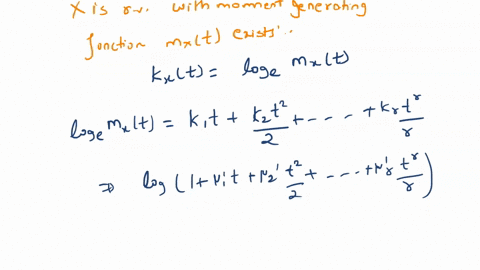 X is r.v. with moment generating
function m_x(t) exists'.
K_x(t) = log_e m_x(t)
log_e m_x(t) = k_1 t + k_2 t^2/2 + ---- + k_r t^r/r
⇒ log (1 + μ_1' t + μ_2' t^2/2 + --- - + μ_r' t^r/r)